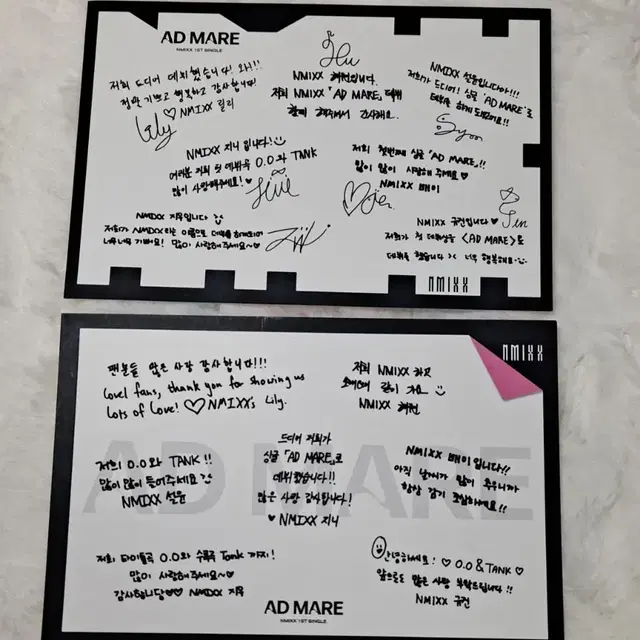 AD MARE
NMIXX 1ST SINGLE
저희 드디어 데뷔했습니다! 와!!
정말 기쁘고 행복하고 감사합니다!
♡ NMIXX 릴리
Lily
NMIXX 해원입니다.
저희 NMIXX 「AD MARE」 데뷔
함께 해주셔서 감사해요.
NMIXX 설윤입니다아!!!
저희가 드디어! 싱글 'AD MARE'로
데뷔를 하게 되었어요!!
NMIXX 지니 입니다!
여러분 저희 첫 데뷔곡 O.O와 TANK
많이 사랑해주세요!
저희 첫번째 싱글 「AD MARE」!!
많이 많이 사랑해 주세요 ♡
NMIXX 배이
NMIXX 지우입니다
저희가 NMIXX라는 이름으로 데뷔를 하게되어
너무너무 기뻐요! 많이 사랑해주세요~♡
NMIXX 규진입니다 ♡
저희가 첫 데뷔싱글 <AD MARE>로
데뷔를 했습니다 >< 너무 행복해요
NMIXX
NMIXX
팬분들 많은 사랑 감사합니다!!!
Love! fans, thank you for showing us
lots of love! ♡ NMIXX's Lily.
저희 NMIXX 하고
오래오래 같이 가요
NMIXX 해원
AD MARE
저희 O.O와 TANK!!
많이 많이 들어주세요
NMIXX 설윤
드디어 저희가
싱글 「AD MARE」로
데뷔했습니다!!
많은 사랑 감사합니다!
♥ NMIXX 지니
NMIXX 배이입니다!!
아직 날씨가 많이 추우니까
항상 감기 조심하세요!!
저희 타이틀곡 O.O와 수록곡 Tank 까지!
많이 사랑해주세요~♡
감사합니당♡♡ NMIXX 지우
안녕하세요! ♡ O.O & TANK ♡
앞으로도 많은 사랑 부탁드립니다!!
NMIXX 규진
AD MARE
NMIXX 1ST SINGLE